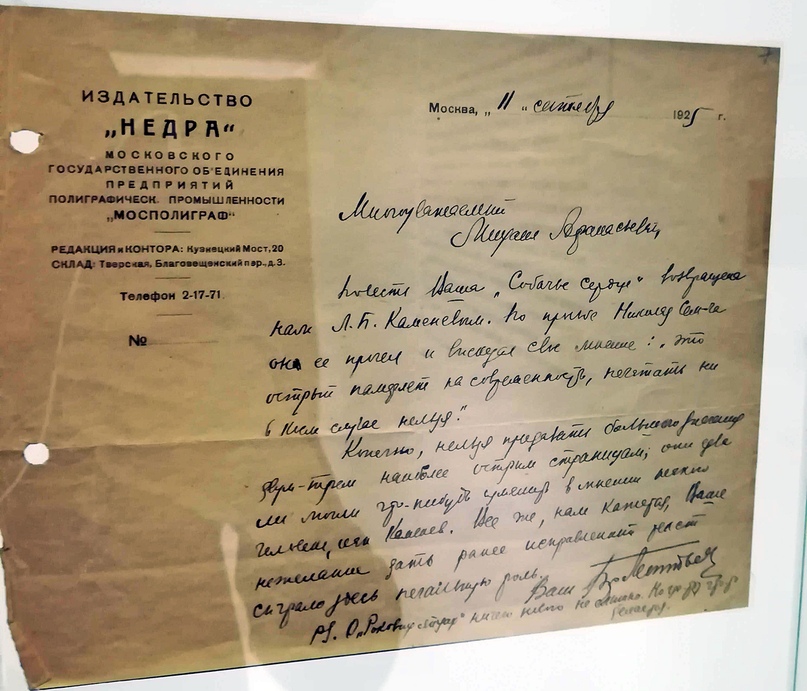 ИЗДАТЕЛЬСТВО
„НЕДРА“
МОСКОВСКОГО
ГОСУДАРСТВЕННОГО ОБ'ЕДИНЕНИЯ
ПРЕДПРИЯТИЙ
ПОЛИГРАФИЧЕСК. ПРОМЫШЛЕННОСТИ
„МОСПОЛИГРАФ“
РЕДАКЦИЯ и КОНТОРА: Кузнецкий Мост, 20
СКЛАД: Тверская, Благовещенский пер., д. 3.
Телефон 2-17-71.
№
Москва, „ 11 “ сентября 1925 г.
Многоуважаемый
Михаил Афанасьевич,
повесть Ваша „Собачье сердце“ возвращена
нам Л. Б. Каменевым. По просьбе Николая Сем-ча
он ее прочел и высказал свое мнение: „это
острый памфлет на современность, печатать ни
в коем случае нельзя“.
Конечно, нельзя придавать большого значения
двум-трем наиболее острым страницам; они едва
ли могли что-нибудь изменить в мнении
человека, как Каменев. Все же, нам кажется, Ваше
нежелание дать ранее исправленный текст
сыграло здесь печальную роль.
Ваш Б. Леонтьев
P.S. О „Роковых яйцах“ ничего нового не